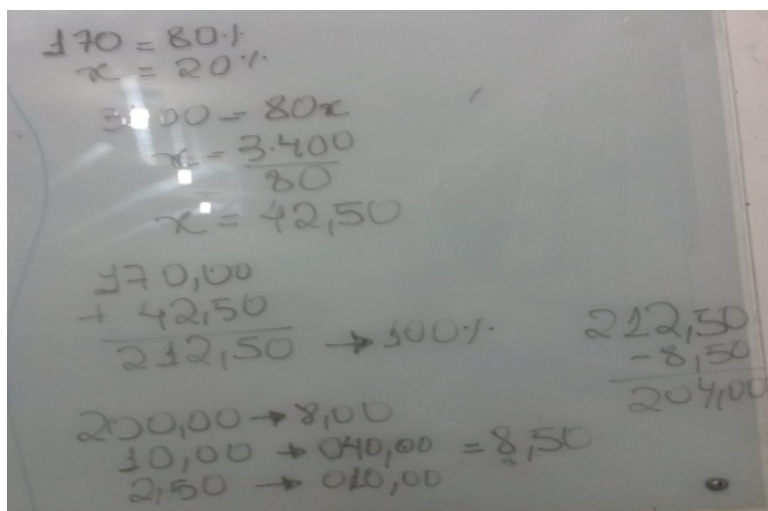 170 = 80%
x = 20%
3400 = 80x
x = 3.400
80
x = 42,50
170,00
+ 42,50
212,50 → 100%
212,50
- 8,50
204,00
200,00 → 8,00
10,00 → 040,00 = 8,50
2,50 → 010,00